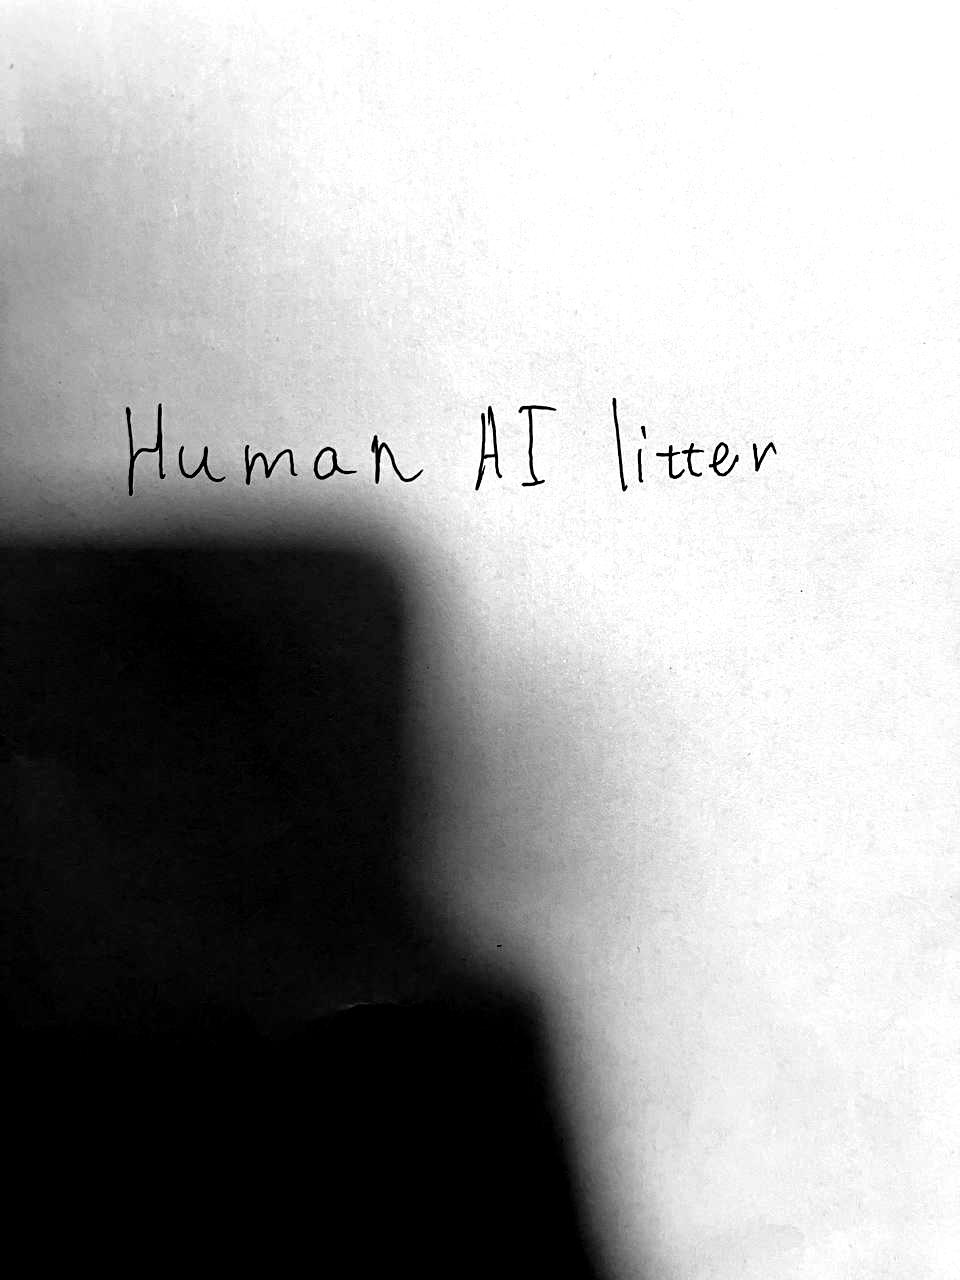 Human AI litter